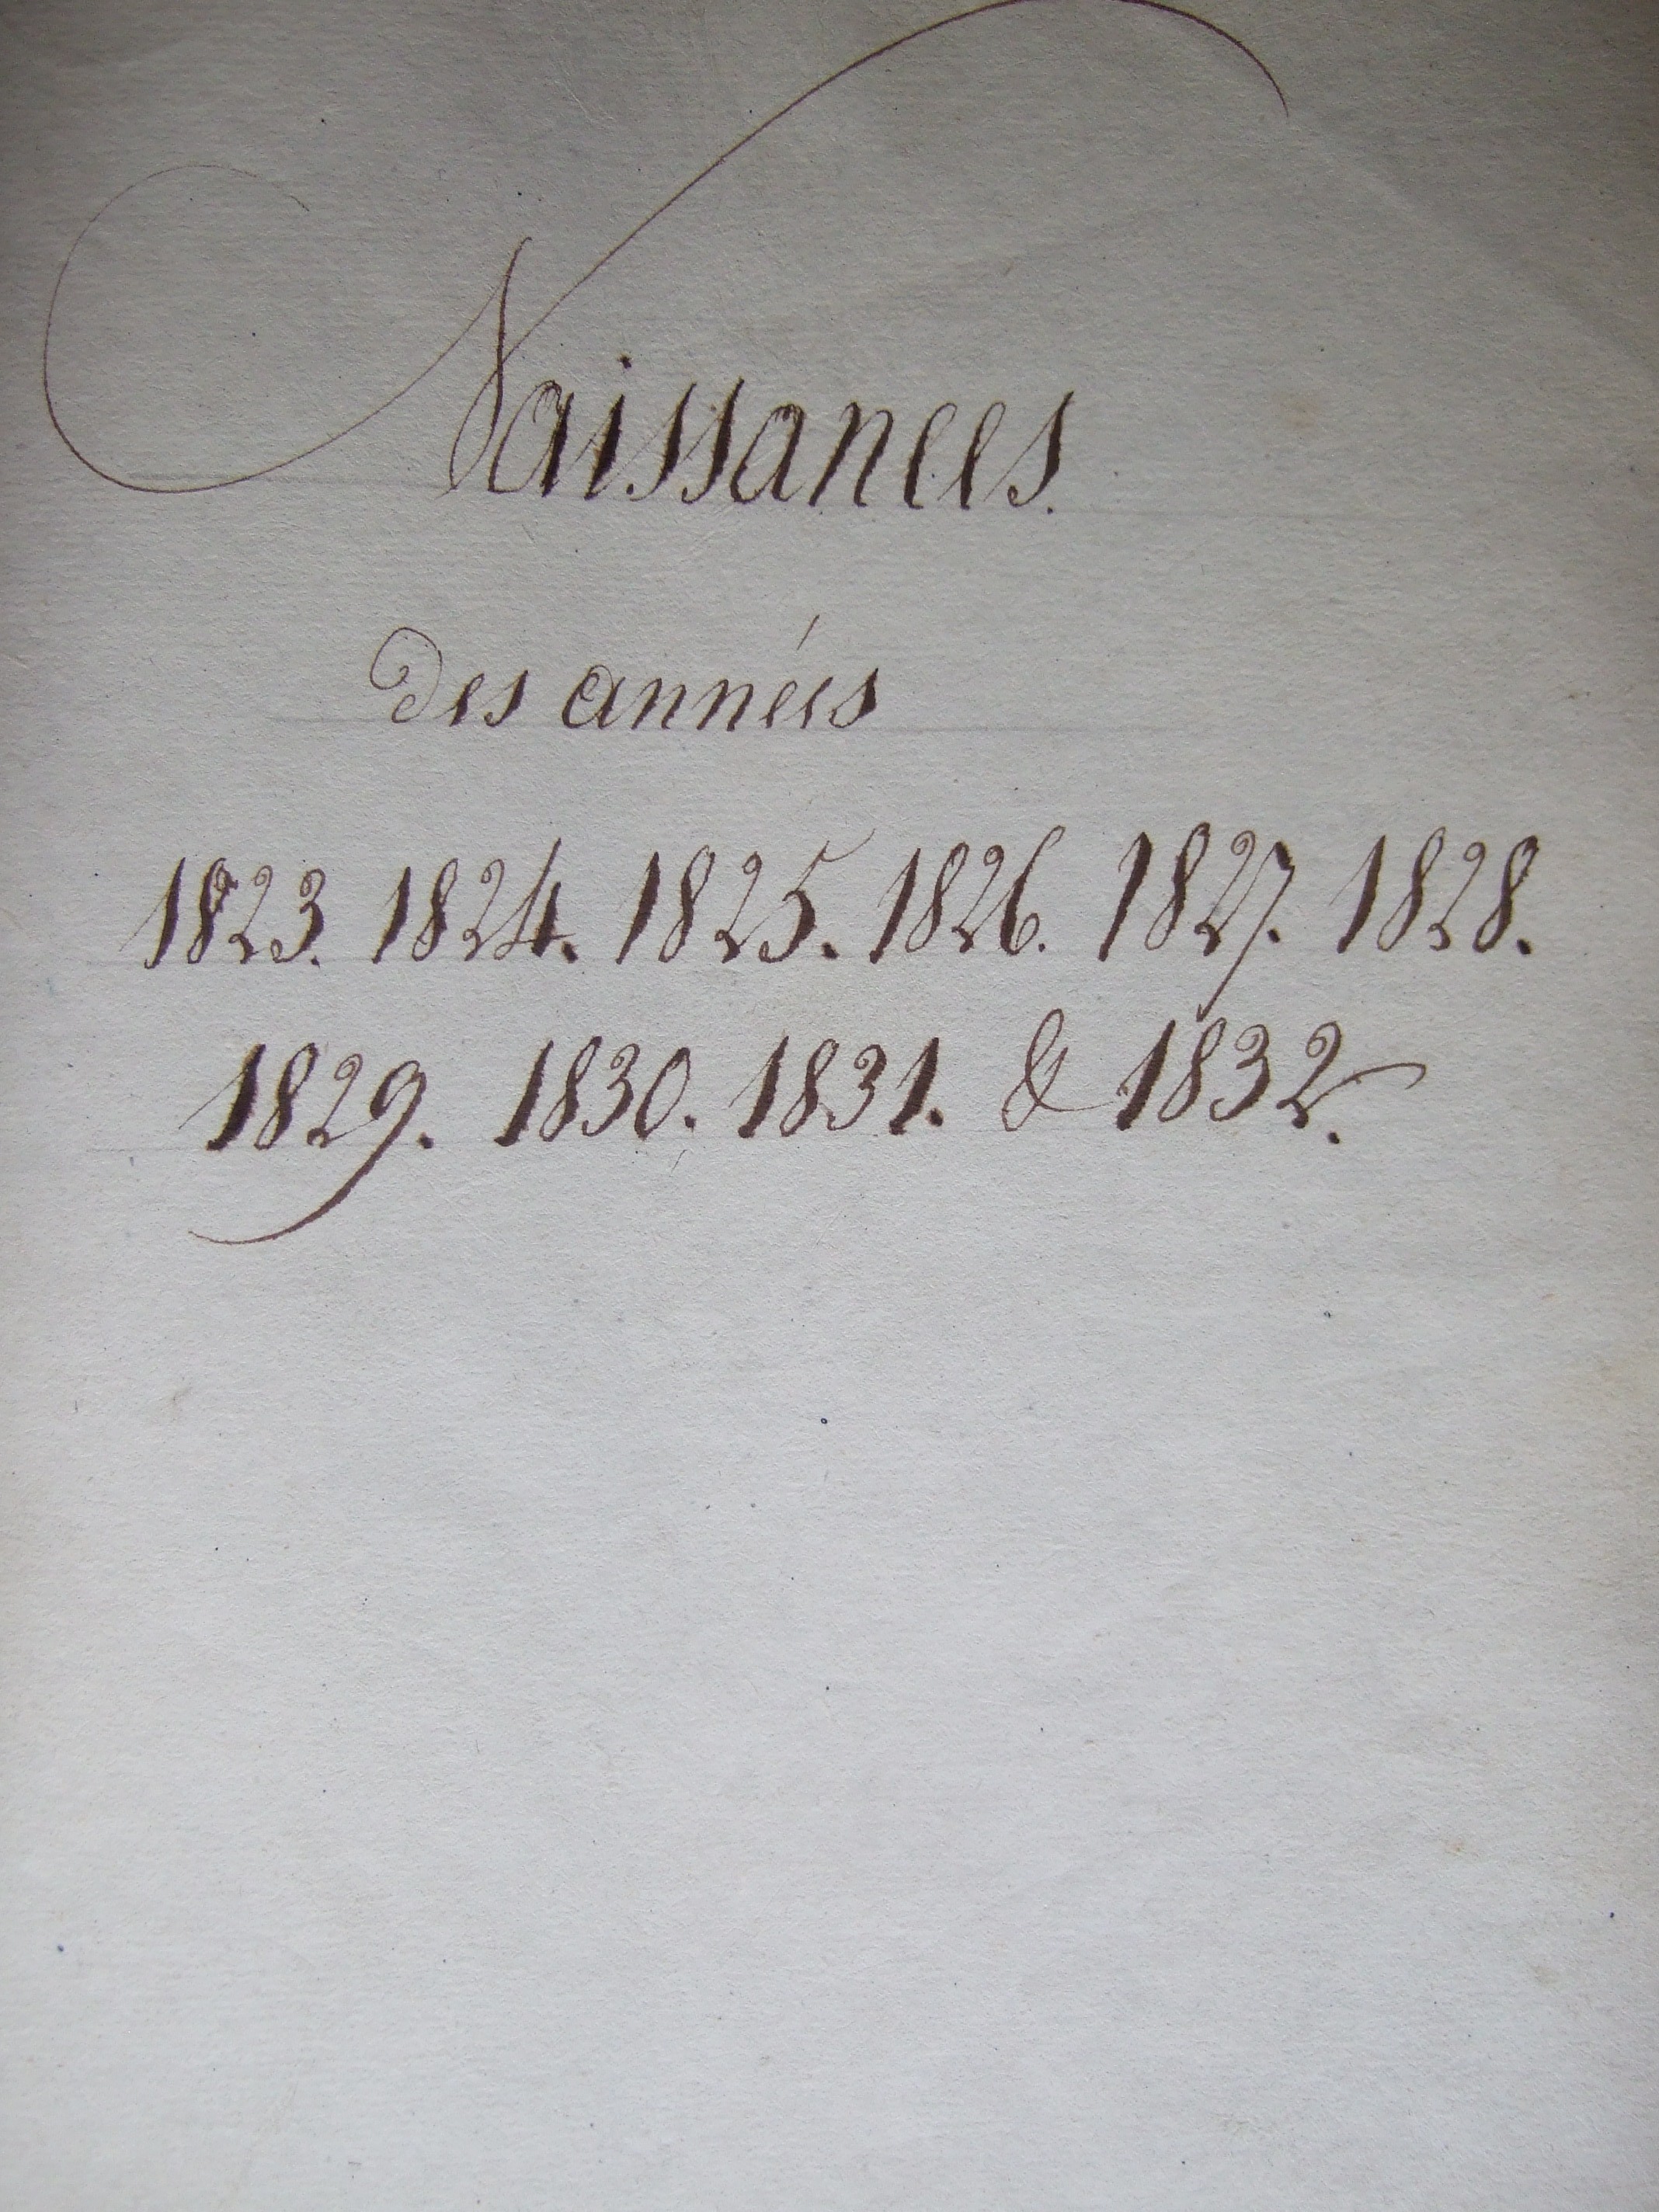 Naissances.
des années
1823. 1824. 1825. 1826. 1827. 1828.
1829. 1830. 1831. & 1832.